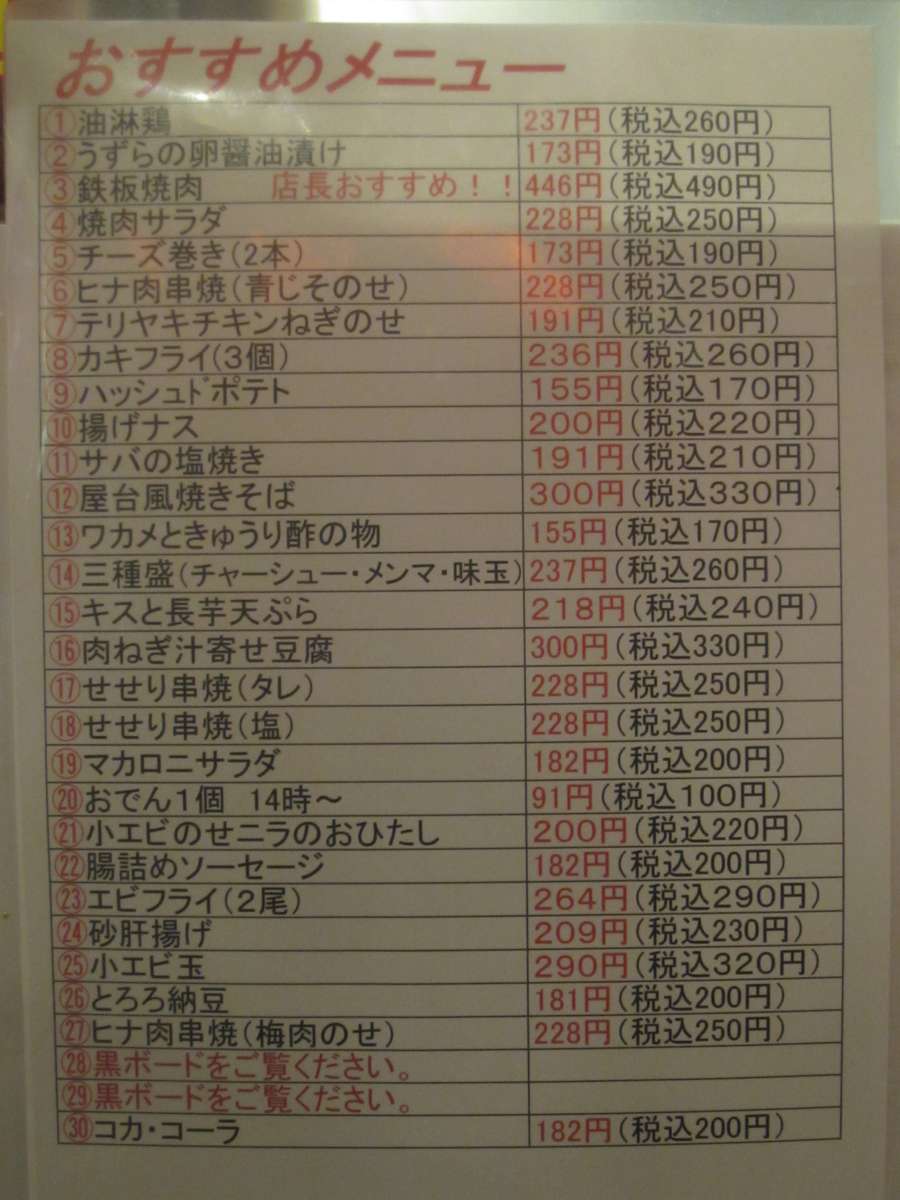 おすすめメニュー
①油淋鶏 237円(税込260円)
②うずらの卵醤油漬け 173円(税込190円)
③鉄板焼肉 店長おすすめ！！ 446円(税込490円)
④焼肉サラダ 228円(税込250円)
⑤チーズ巻き(2本) 173円(税込190円)
⑥ヒナ肉串焼(青じそのせ) 228円(税込250円)
⑦テリヤキチキンねぎのせ 191円(税込210円)
⑧カキフライ(3個) 236円(税込260円)
⑨ハッシュドポテト 155円(税込170円)
⑩揚げナス 200円(税込220円)
⑪サバの塩焼き 191円(税込210円)
⑫屋台風焼きそば 300円(税込330円)
⑬ワカメときゅうり酢の物 155円(税込170円)
⑭三種盛(チャーシュー・メンマ・味玉) 237円(税込260円)
⑮キスと長芋天ぷら 218円(税込240円)
⑯肉ねぎ汁寄せ豆腐 300円(税込330円)
⑰せせり串焼(タレ) 228円(税込250円)
⑱せせり串焼(塩) 228円(税込250円)
⑲マカロニサラダ 182円(税込200円)
⑳おでん1個 14時～ 91円(税込100円)
㉑小エビのせニラのおひたし 200円(税込220円)
㉒腸詰めソーセージ 182円(税込200円)
㉓エビフライ(2尾) 264円(税込290円)
㉔砂肝揚げ 209円(税込230円)
㉕小エビ玉 290円(税込320円)
㉖とろろ納豆 181円(税込200円)
㉗ヒナ肉串焼(梅肉のせ) 228円(税込250円)
㉘黒ボードをご覧ください。
㉙黒ボードをご覧ください。
㉚コカ・コーラ 182円(税込200円)